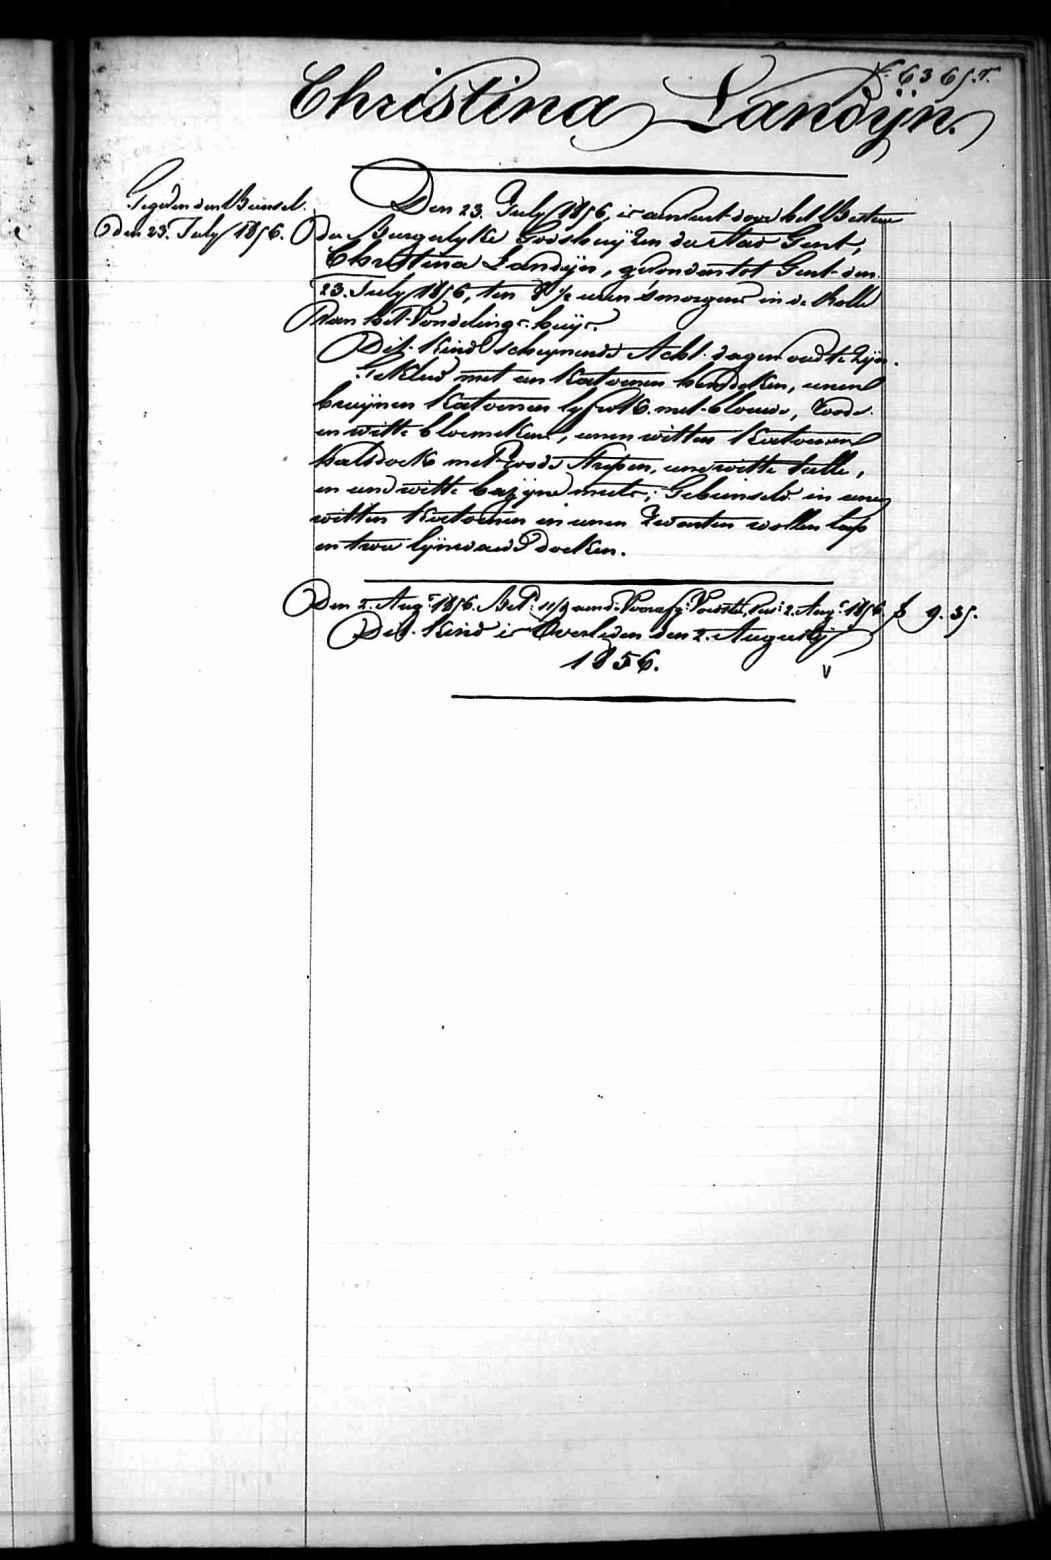 f.° 6365.r.
Christina Landijn.
Tegeven den Bunsel.
Den 23. July 1856.
Den 23. July 1856, is aenveert door het Bestuur
der Burgerlyke Godshuijzen der Stad Gent,
Christina Landijn, gevonden tot Gent den
23. July 1856, ten 8 1/2 uren smorgens in de Rolle
van het Vondelings-huijs.
Dit kind schynende Acht dagen oud te zijn.
Gekleed met een katoenen hemdeken, eenen
bruijnen katoenen lyfrok met blauwe, roode
en witte bloemekens, eenen witten katoenen
halsdoek met roode strepen, eene witte tulle,
en eene witte bazijne muts; Gebunseld in eenen
witten katoenen en eenen zwarten wollen lap
en twee lijnwaed doeken.
Den 2. Aug.t 1856. Bet. 11/9 aen de Voorsz. Voedster, tus: 2. Aug.t 1856 f 9. 35.
Dit kind is Overleden den 2. Augustij
1856.